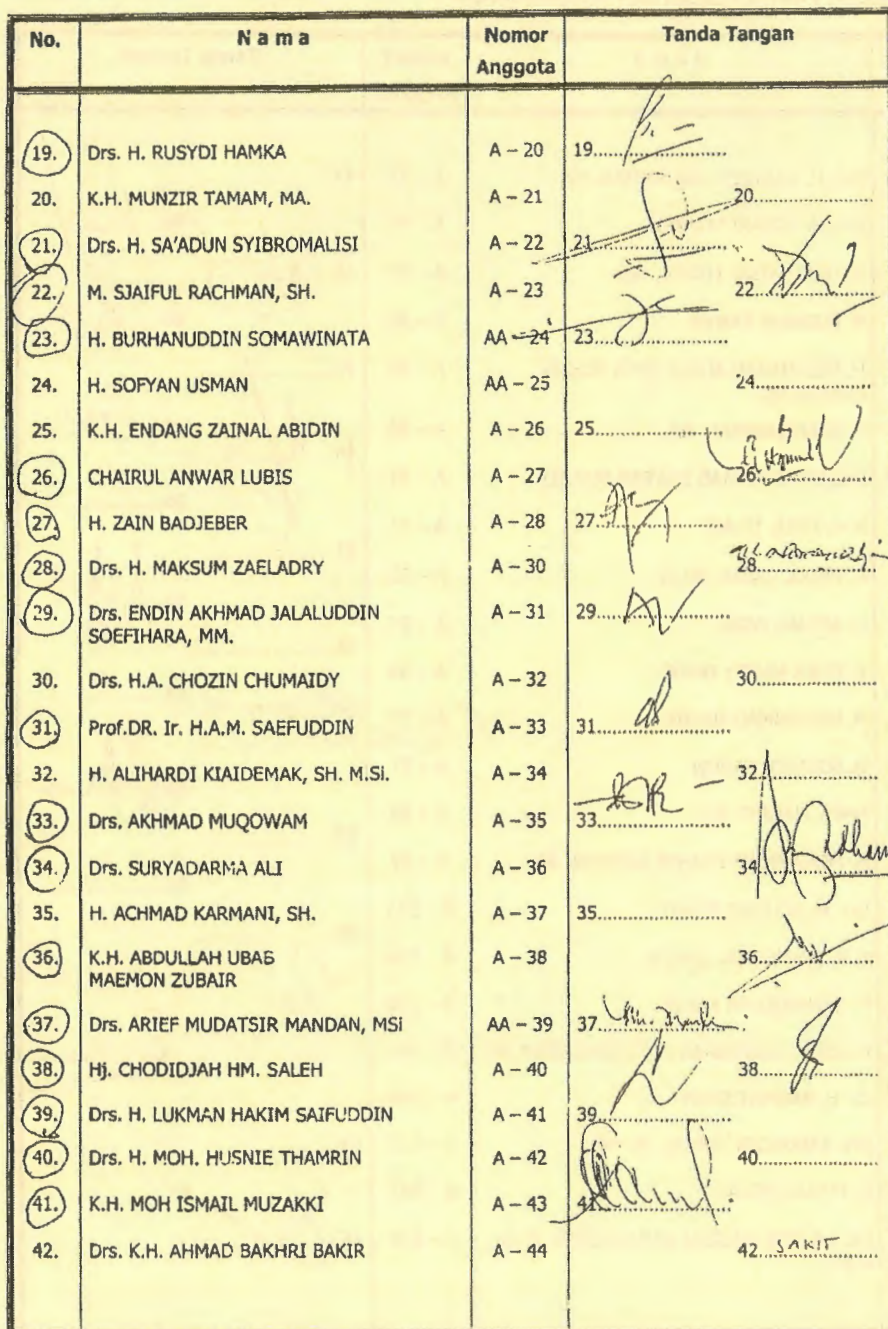 No. Nama Nomor Anggota Tanda Tangan
19. Drs. H. RUSYDI HAMKA A – 20 19..................
20. K.H. MUNZIR TAMAM, MA. A – 21 20..................
21. Drs. H. SA'ADUN SYIBROMALISI A – 22 21..................
22. M. SJAIFUL RACHMAN, SH. A – 23 22..................
23. H. BURHANUDDIN SOMAWINATA AA – 24 23..................
24. H. SOFYAN USMAN AA – 25 24..................
25. K.H. ENDANG ZAINAL ABIDIN A – 26 25..................
26. CHAIRUL ANWAR LUBIS A – 27 26..................
27. H. ZAIN BADJEBER A – 28 27..................
28. Drs. H. MAKSUM ZAELADRY A – 30 28..................
29. Drs. ENDIN AKHMAD JALALUDDIN A – 31 29..................
SOEFIHARA, MM.
30. Drs. H.A. CHOZIN CHUMAIDY A – 32 30..................
31. Prof.DR. Ir. H.A.M. SAEFUDDIN A – 33 31..................
32. H. ALIHARDI KIAIDEMAK, SH. M.Si. A – 34 32..................
33. Drs. AKHMAD MUQOWAM A – 35 33..................
34. Drs. SURYADARMA ALI A – 36 34..................
35. H. ACHMAD KARMANI, SH. A – 37 35..................
36. K.H. ABDULLAH UBAB A – 38 36..................
MAEMON ZUBAIR
37. Drs. ARIEF MUDATSIR MANDAN, MSi AA – 39 37..................
38. Hj. CHODIDJAH HM. SALEH A – 40 38..................
39. Drs. H. LUKMAN HAKIM SAIFUDDIN A – 41 39..................
40. Drs. H. MOH. HUSNIE THAMRIN A – 42 40..................
41. K.H. MOH ISMAIL MUZAKKI A – 43 41..................
42. Drs. K.H. AHMAD BAKHRI BAKIR A – 44 42...SAKIT.......